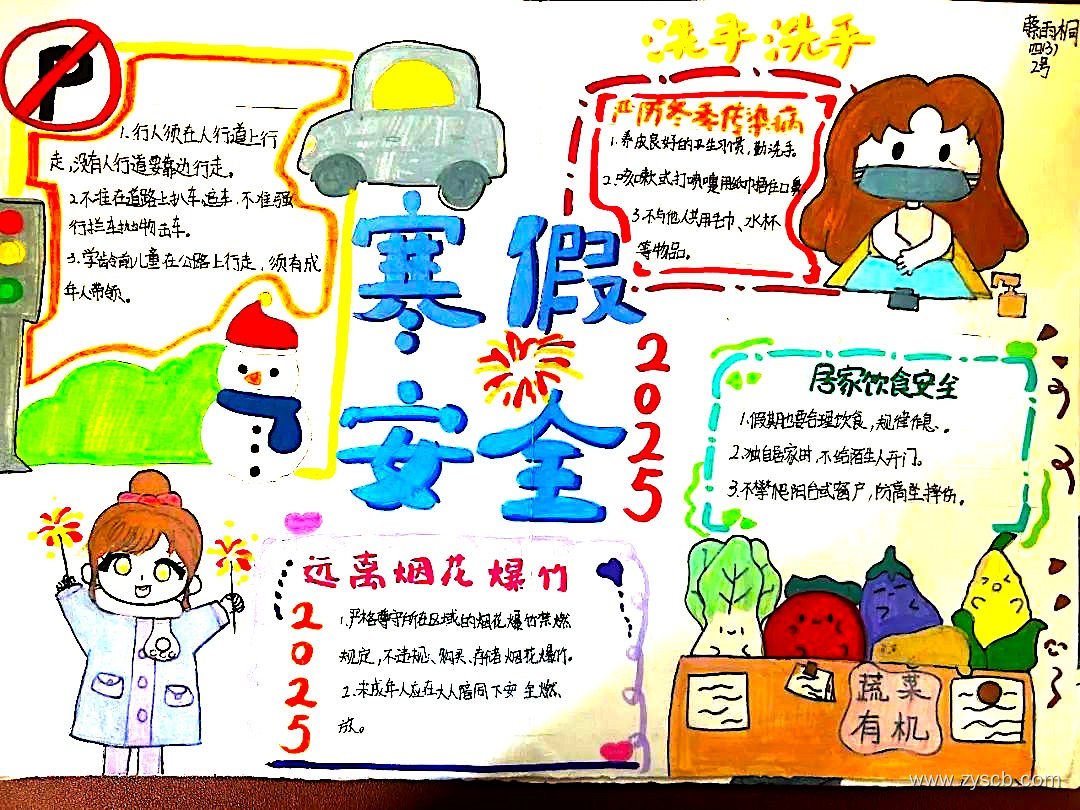 蔡雨桐
四(3)
2号
P
1.行人须在人行道上行
走,没有人行道要靠边行走。
2.不准在道路上扒车追车,不准强
行拦车抛物击车。
3.学龄前儿童在公路上行走,须有成
年人带领。
洗手洗手
严防冬季传染病
1.养成良好的卫生习惯,勤洗手。
2.咳嗽式打喷嚏用纸巾捂住口鼻
3.不与他人共用毛巾、水杯
等物品。
寒假
安全
2025
居家饮食安全
1.假期也要合理饮食,规律作息。
2.独自居家时,不给陌生人开门。
3.不攀爬阳台式窗户,防高坠摔伤。
远离烟花爆竹
2025
1.严格尊守所在区域的烟花爆竹禁燃
规定,不违规、购买、存储烟花爆竹。
2.未成年人应在大人陪同下安全燃
放。
蔬菜
有机
www.zyscb.com